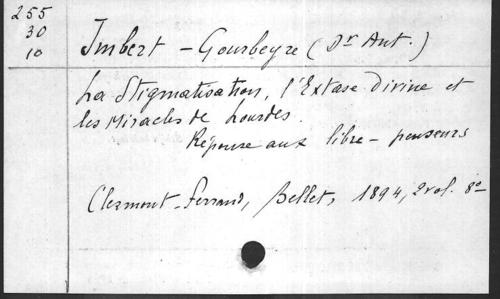 255
30
10
Imbert - Gourbeyre (Dr Ant.)
La Stigmatisation, l'Extase divine et
les Miracles de Lourdes.
Réponse aux libre - penseurs
Clermont-Ferrand, Bellet, 1894, 2 vol. 8º